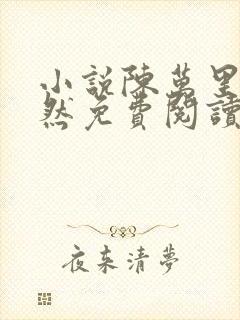 小說陳萬里
然免費閱讀
夜来清夢